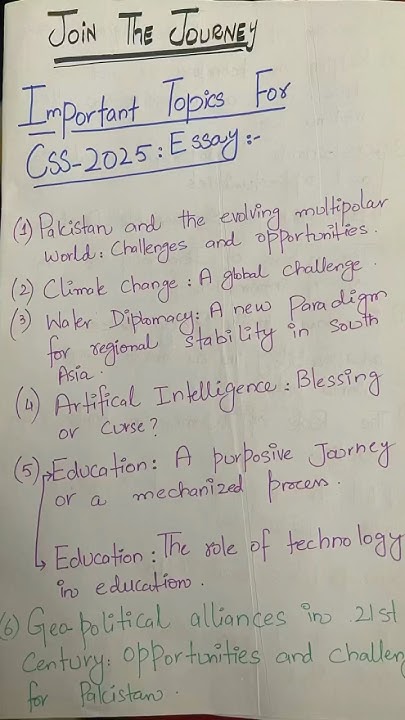 Join The Journey
Important Topics For
CSS-2025: Essay:-
(1) Pakistan and the evolving multipolar
world: Challenges and opportunities.
(2) Climate Change: A global challenge.
(3) Water Diplomacy: A new Paradigm
for regional stability in South
Asia.
(4) Artifical Intelligence: Blessing
or Curse?
(5) Education: A purposive Journey
or a mechanized process.
Education: The role of technology
in education.
(6) Geopolitical alliances in 21st
Century: opportunities and challen
for Pakistan.